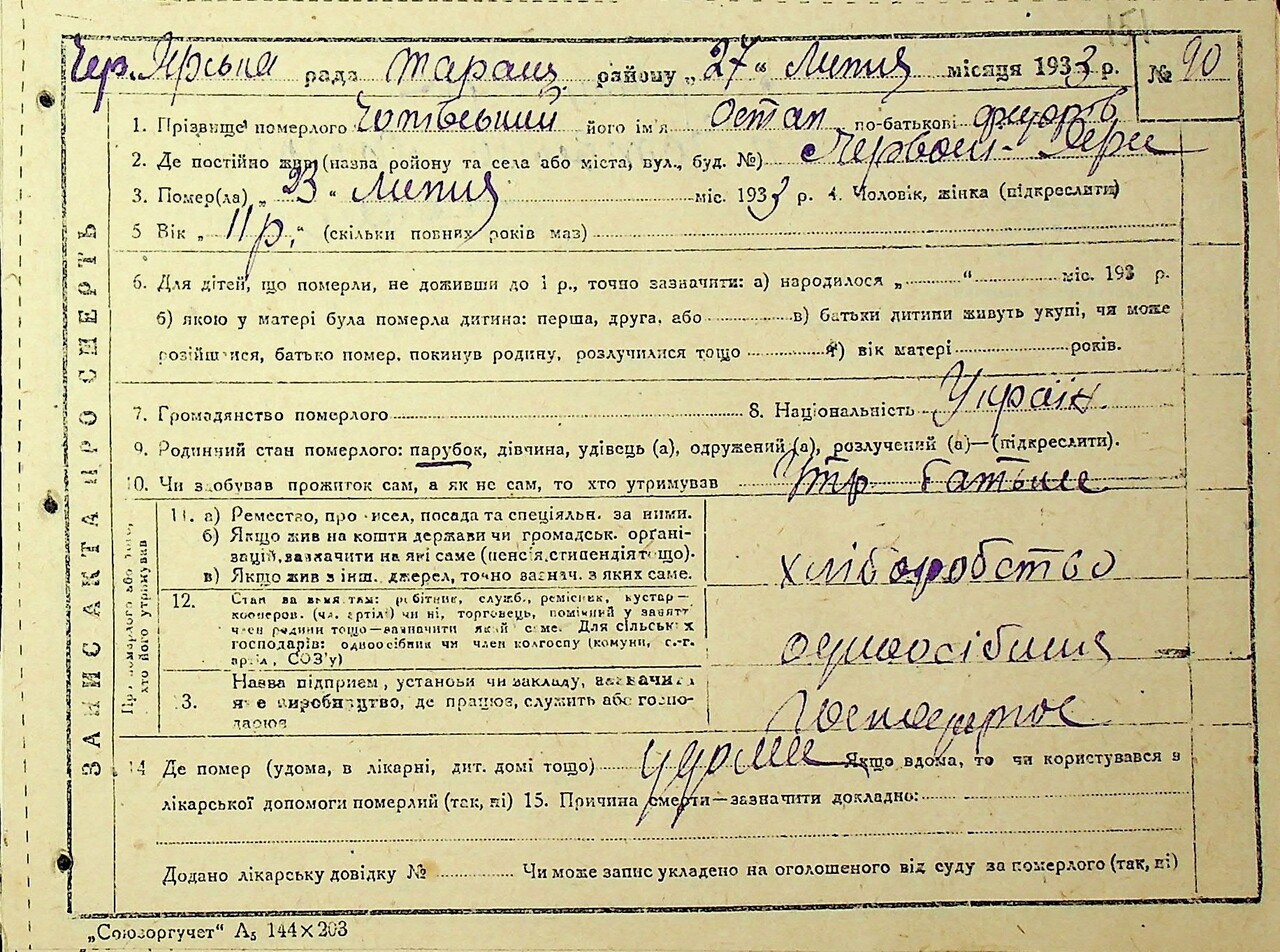 151
Чер. Ярська рада Таращ. району „27“ Липня місяця 1933 р. № 90
1. Прізвище померлого його ім'я Остап по-батькові федорів
2. Де постійно жив (назва ройону та села або міста, вул., буд. №) Червоні-Яри
3. Помер(ла) „23“ Липня міс. 1933 р. 4. Чоловік, жінка (підкреслити)
5 Вік „11р.“ (скільки повних років маз)
6. Для дітей, що померли, не доживши до 1 р., точно зазначити: а) народилося „ “ міс. 193 р.
б) якою у матері була померла дитина: перша, друга, або в) батьки дитини живуть укупі, чи може
розійшлися, батько помер, покинув родину, розлучилися тощо г) вік матері років.
7. Громадянство померлого 8. Національність Україн.
9. Родинчий стан померлого: парубок, дівчина, удівець (а), одружений (а), розлучений (а)—(підкреслити).
10. Чи здобував прожиток сам, а як не сам, то хто утримував Утр батьки
ЗАПИС АКТА ПРО СМЕРТЬ
Про померлого або того, хто його утримував
11. а) Ремество, промисел, посада та спеціяльн. за ними.
б) Якщо жив на кошти держави чи громадськ. орґані-
зацій, зазначити на які саме (пенсія, стипендія тощо).
в) Якщо жив з інш. джерел, точно зазнач. з яких саме.
хліборобство
12. Стан за заняттям: робітник, служб., ремісник, кустар—
кооперов. (чл. артілі) чи ні, торговець, помічний у занятт
член родини тощо—зазначити який саме. Для сільських
господарів: одноосібник чи член колгоспу (комуни, с.-г.
артіл, СОЗ'у)
одноосібния
13. Назва підприєм, установи чи закладу, зазначити
яке виробництво, де працює, служить або госпо-
дарює
Господарює
14 Де помер (удома, в лікарні, дит. домі тощо) удома Якщо вдома, то чи користувався з
лікарської допомоги померлий (так, ні) 15. Причина смерти—зазначити докладно:
Додано лікарську довідку № Чи може запис укладено на оголошеного від суду за померлого (так, ні)
„Союзоргучет“ А₅ 144×203